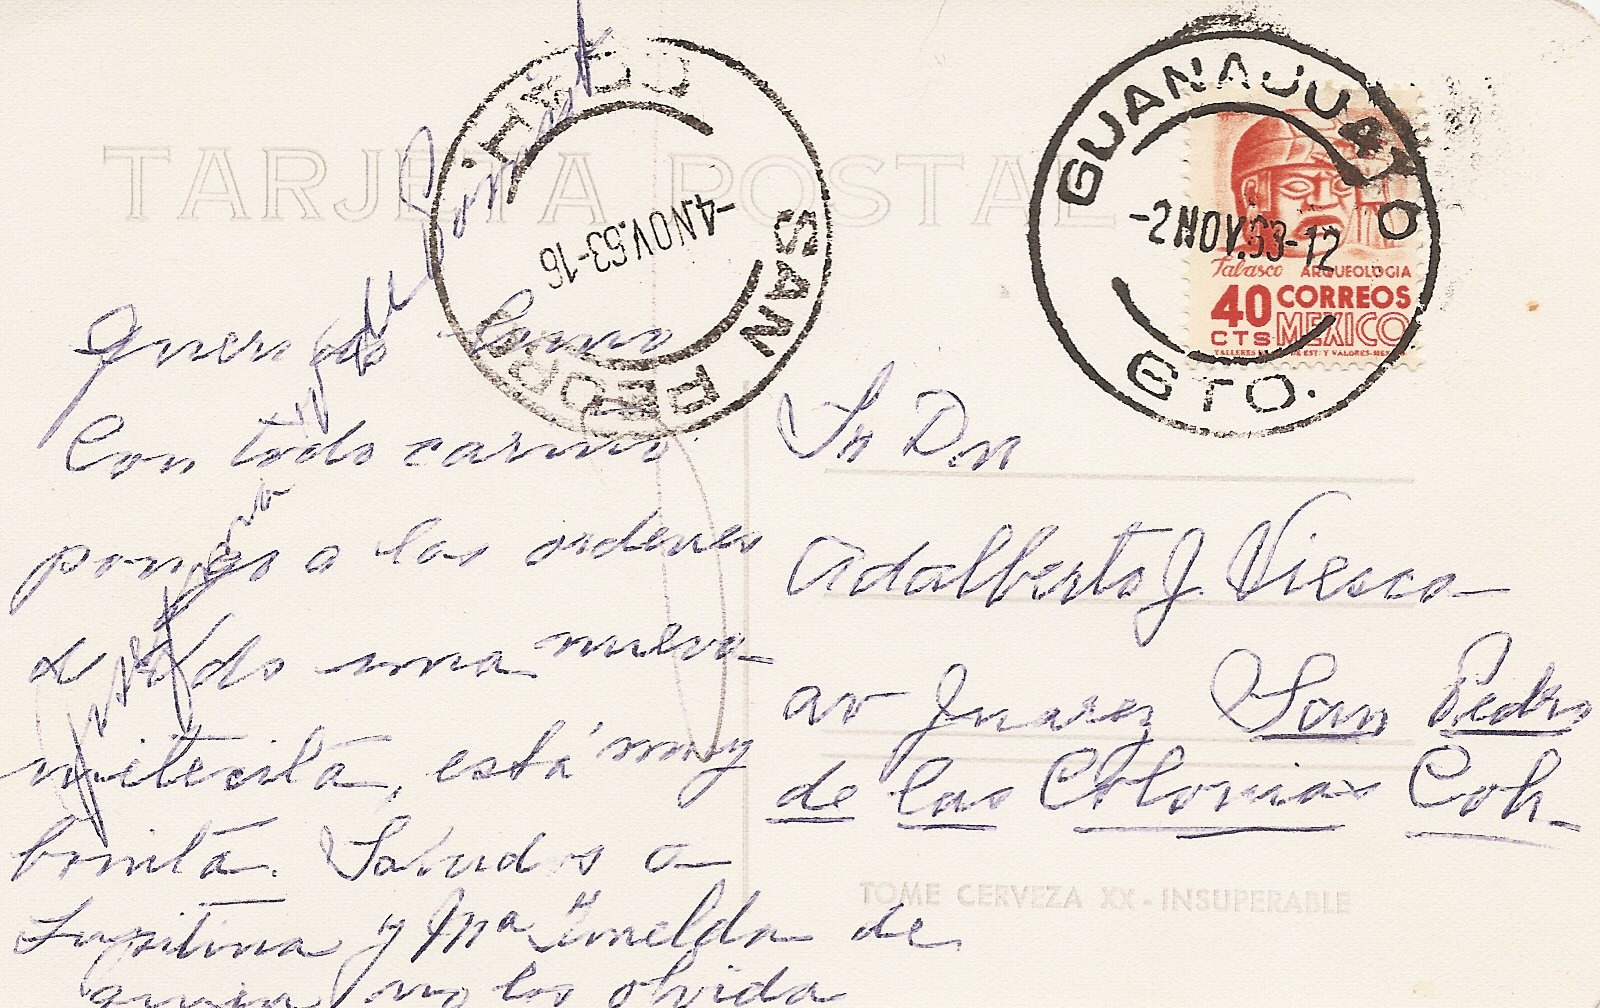 TARJETA POSTAL
SAN PEDRO
COAH.
-4.NOV.53-16
GUANAJUATO
-2NOV.53-12
GTO.
Tabasco ARQUEOLOGIA
40 CORREOS
CTS MEXICO
Querido
Con todo cariño
pongo a las ordenes
de Vds una nueva
nietecita, está muy
bonita. Saludos a
y Mª Imelda de
quien no los olvida
Sr Dn
Adalberto J. Viesca
av Juarez San Pedro
de las Colonias Coh.
TOME CERVEZA XX - INSUPERABLE